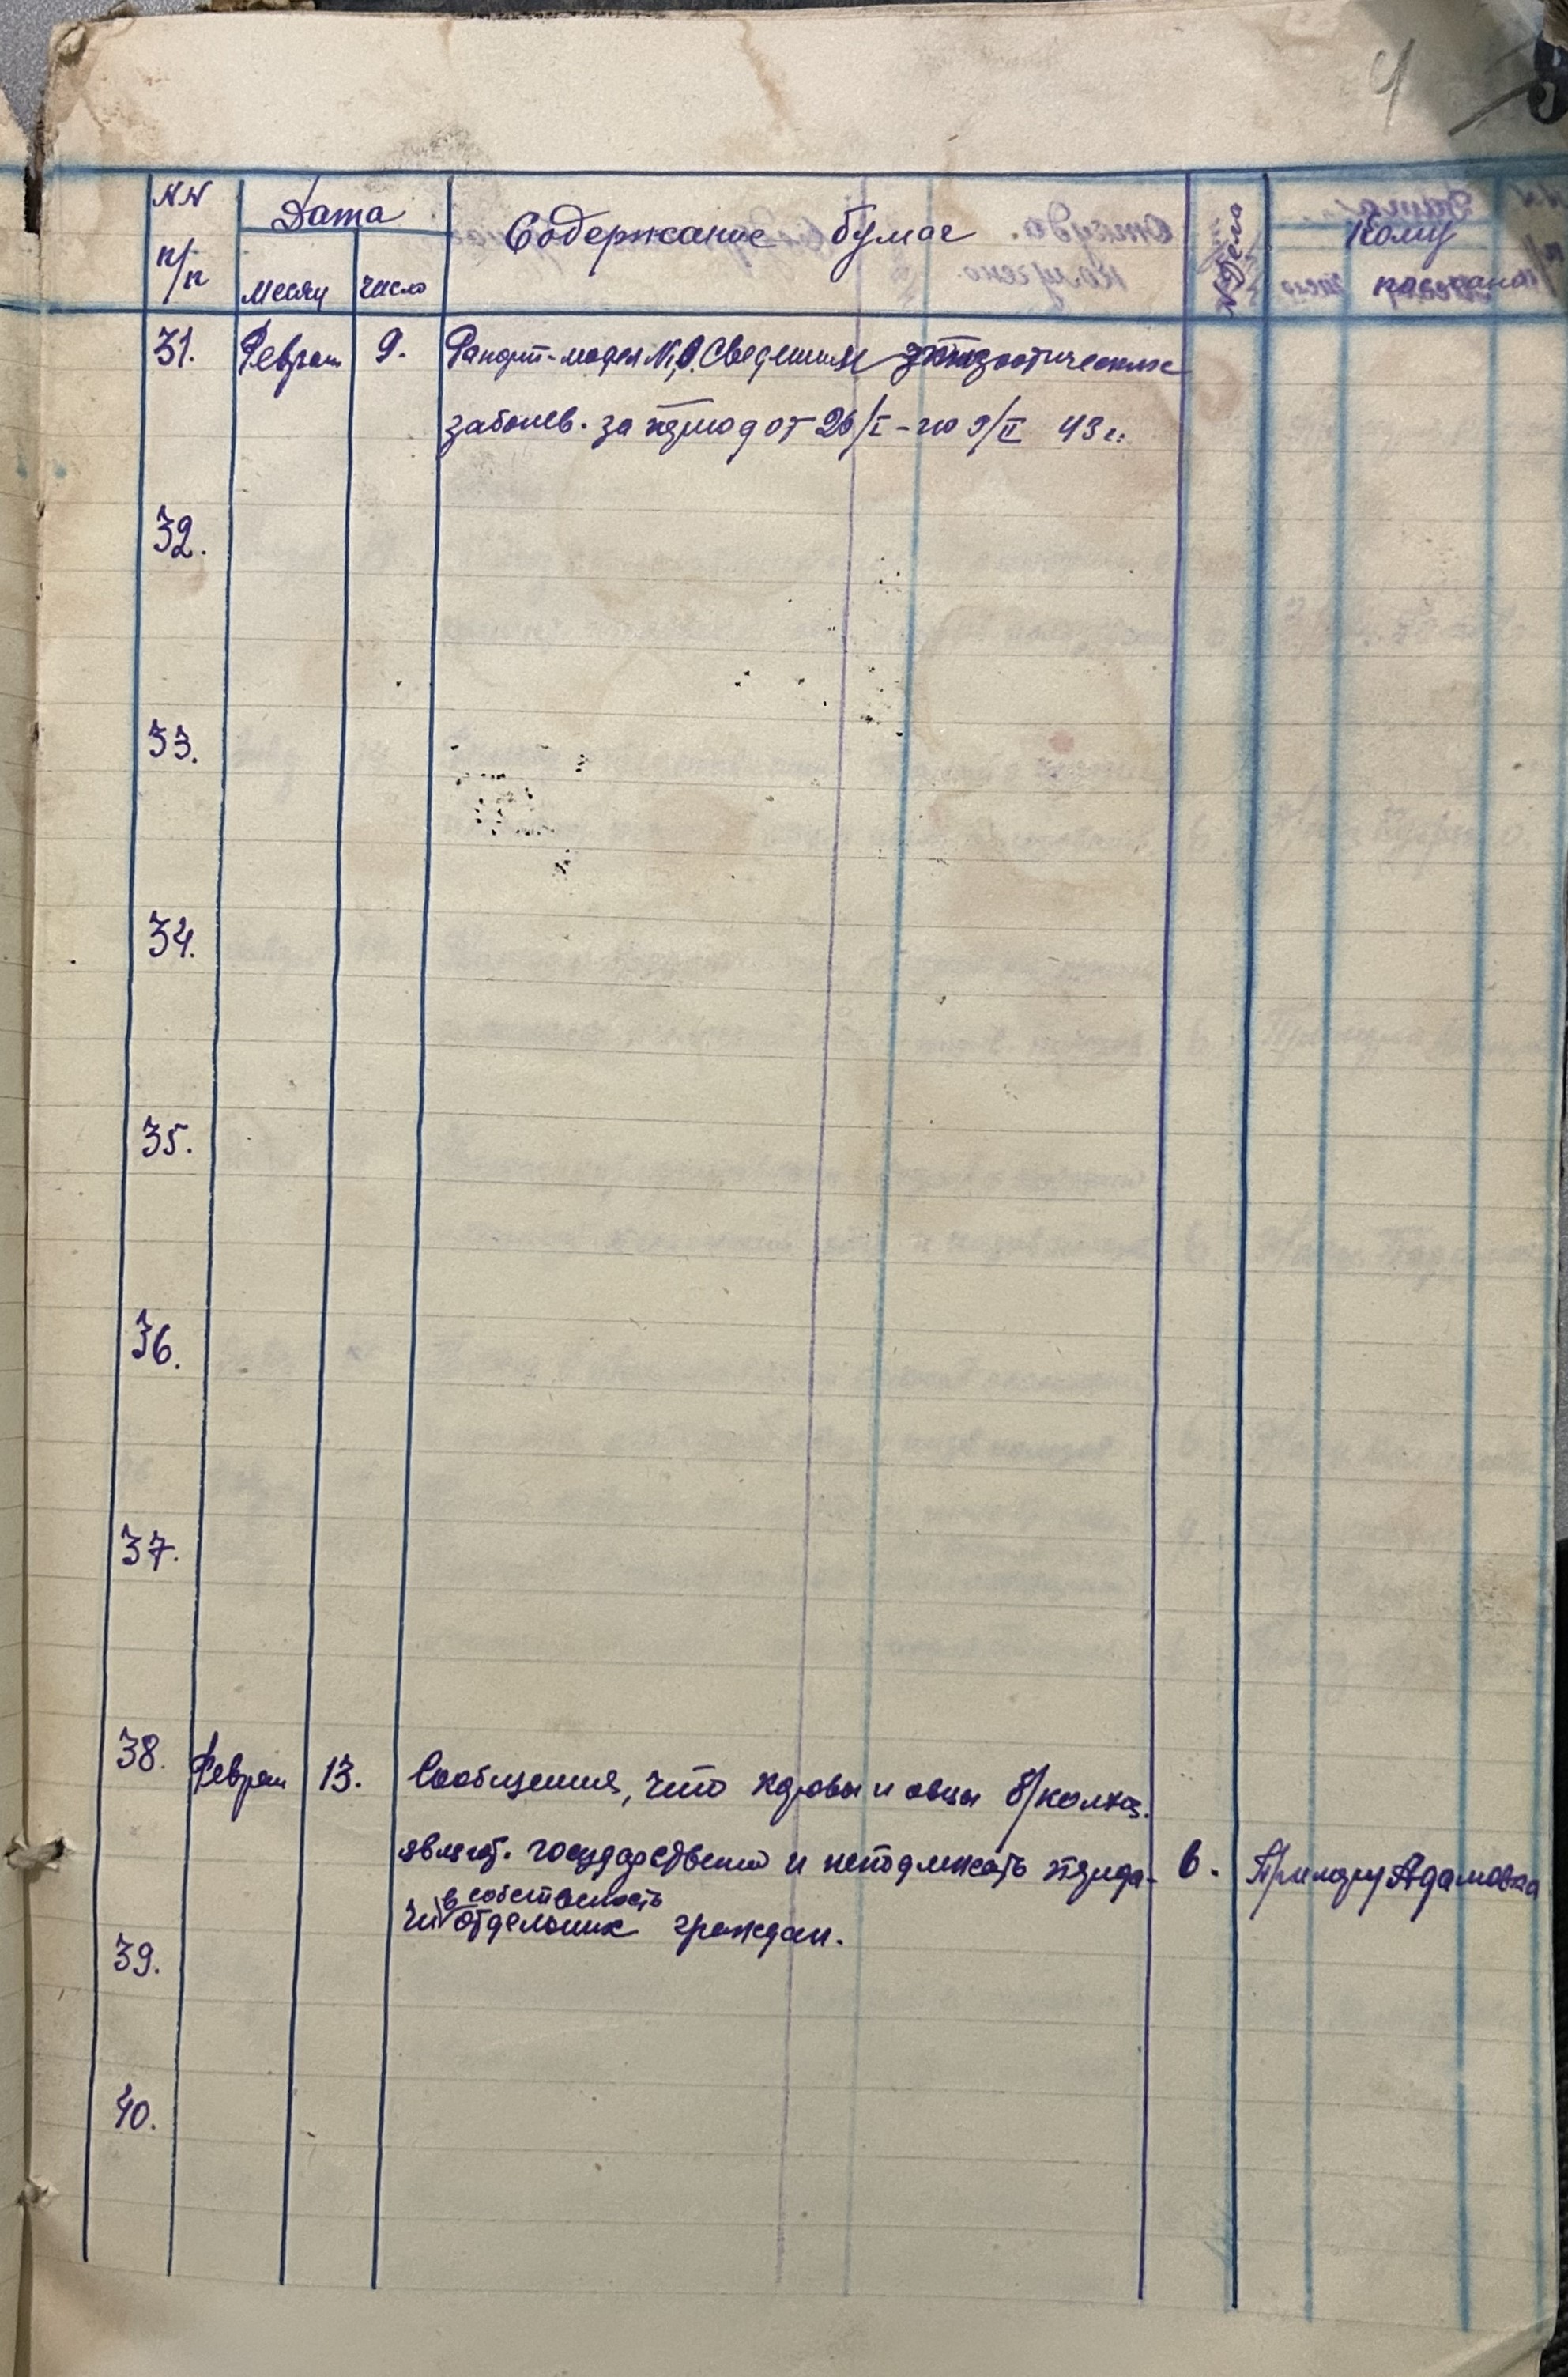 4
NN п/п Дата Содержание бумаг № Дела Кому послано
месяц число
31. Феврал 9. Рапорт-модел №1,0. Сведения эпизоотических
заболев. за период от 26/I - по 9/II 43 г.
32.
33.
34.
35.
36.
37.
38. Феврал 13. Сообщения, что коровы и овцы б/колхоз.
являют. государствено и неподлежать переда- 6. Примару Адамовка
чи в собственность отдельник граждан.
39.
40.